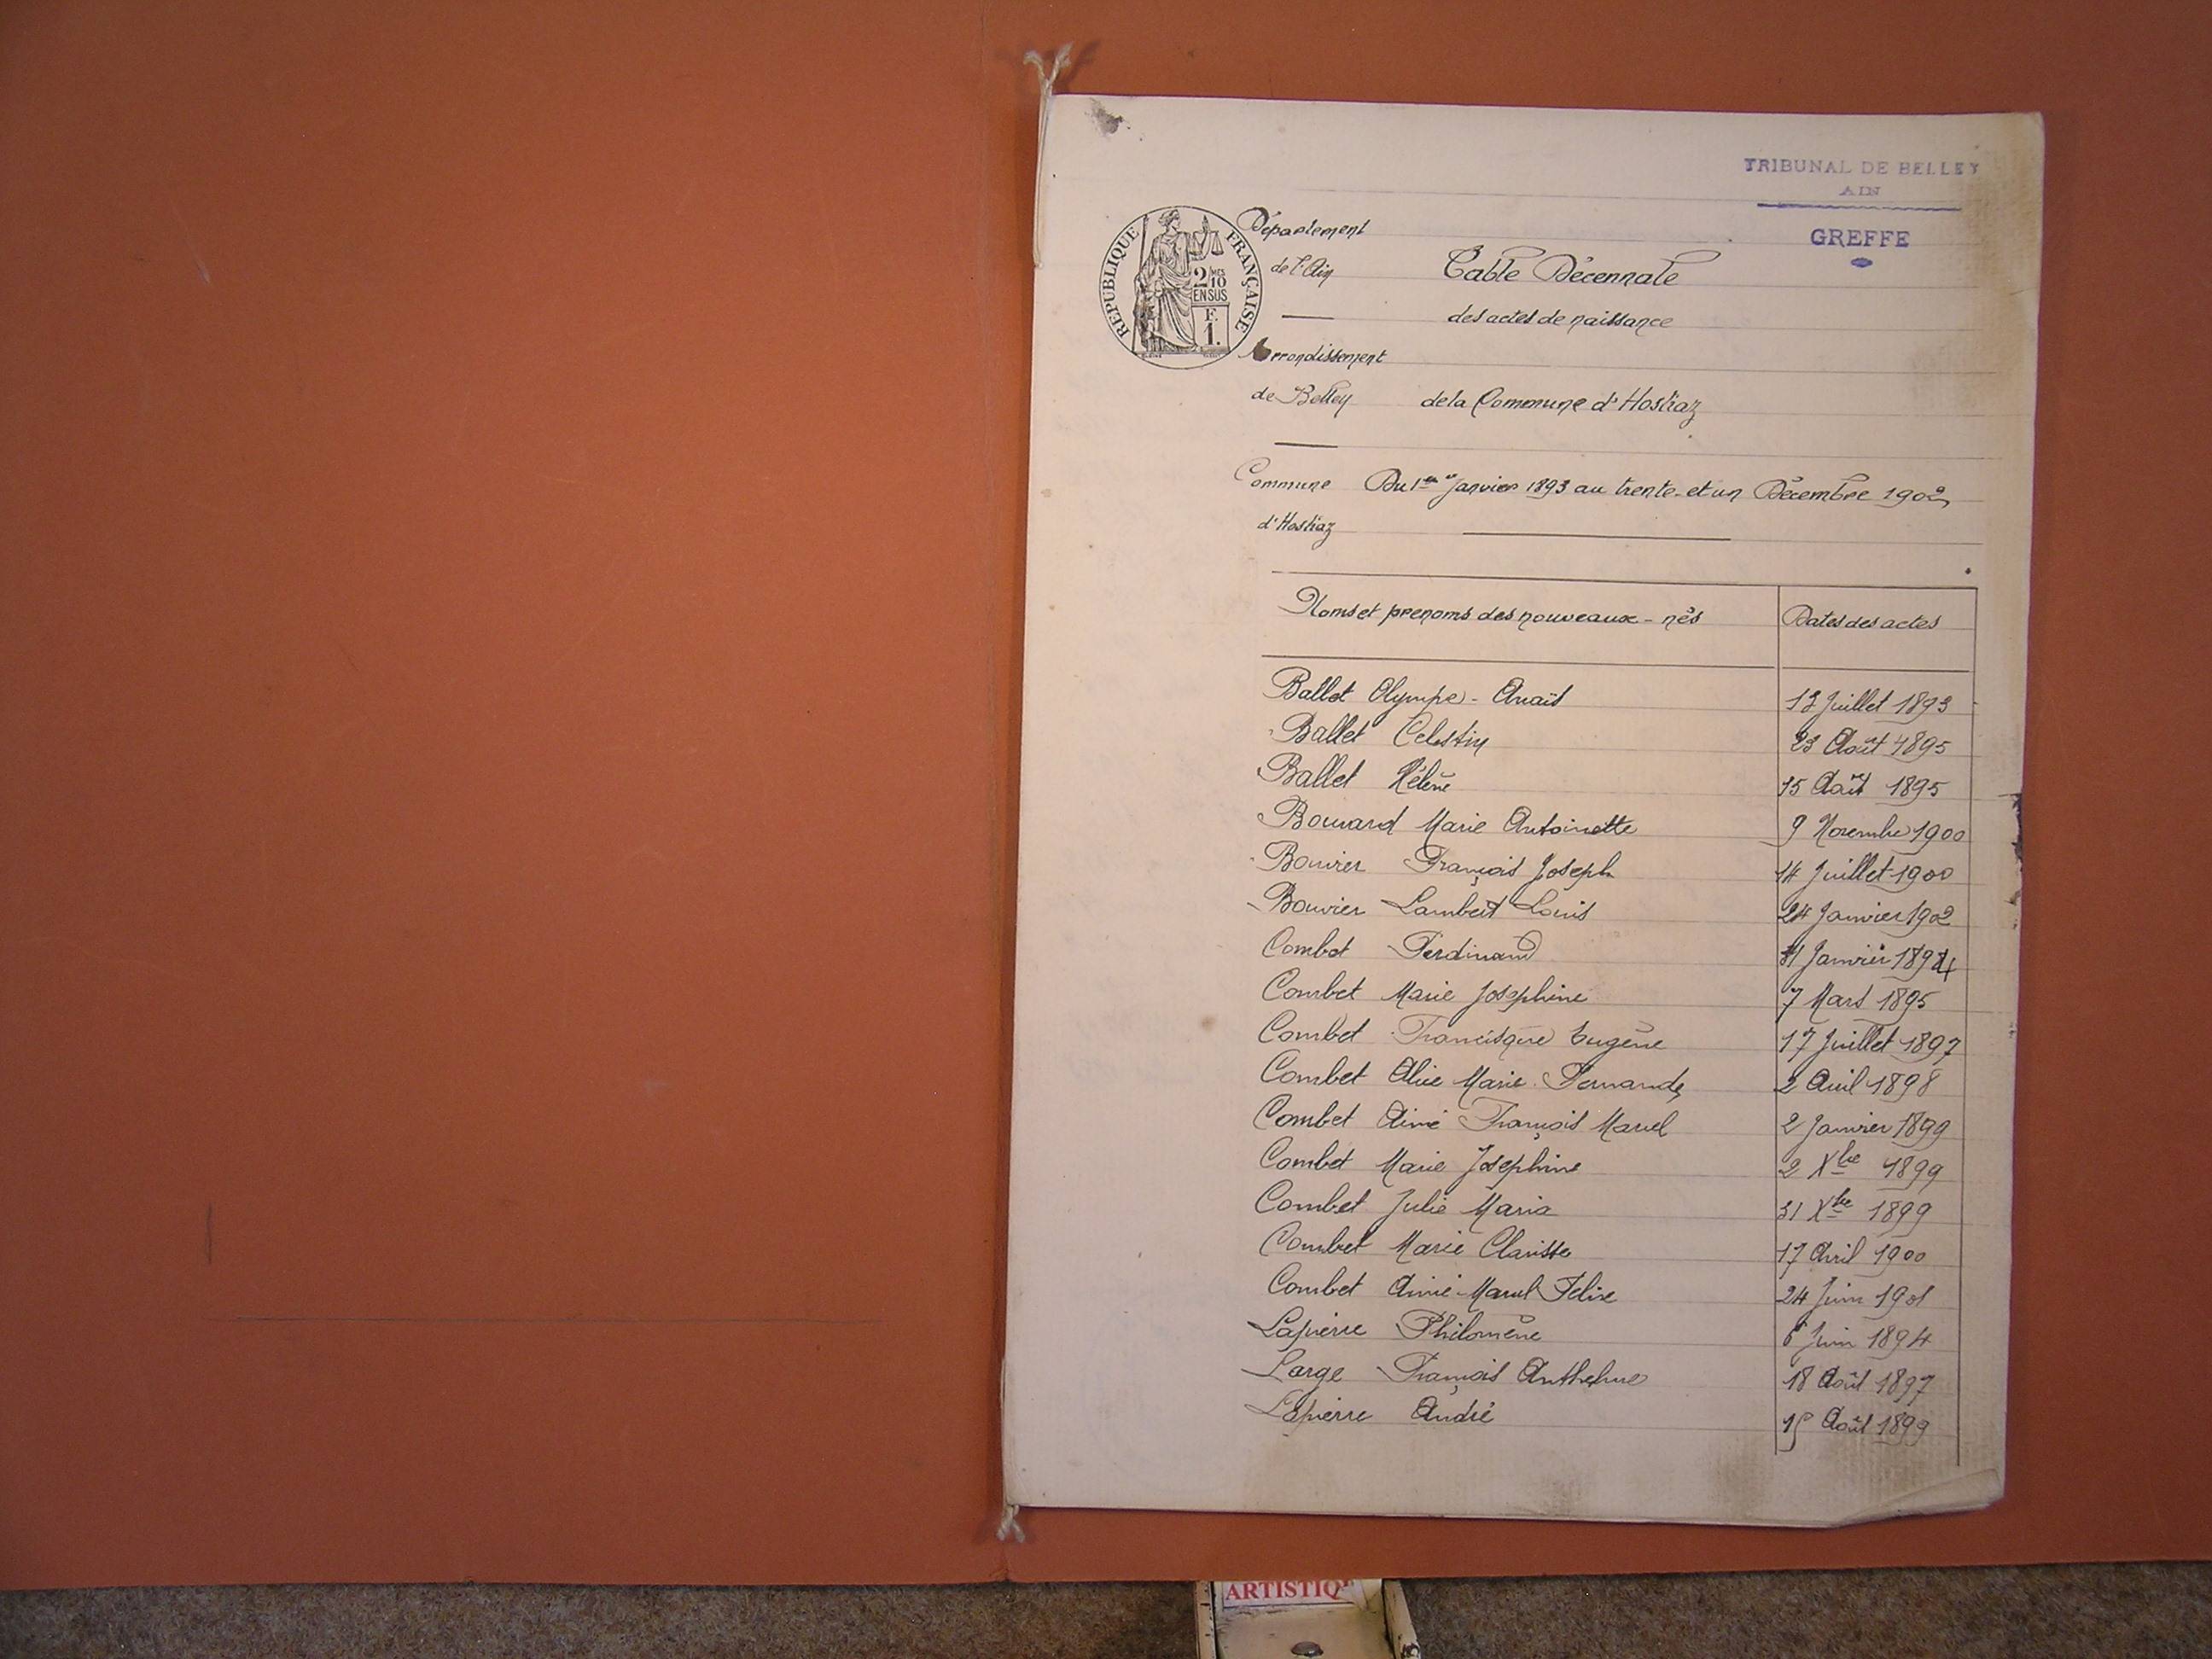 TRIBUNAL DE BELLEY
AIN
GREFFE
RÉPUBLIQUE FRANÇAISE
2/10 MES
EN SUS
F.
1.
Département
de l'Ain
Table Décennale
des actes de naissance
Arrondissement
de Belley
de la Commune d'Hostiaz
Commune
d'Hostiaz
Du 1er Janvier 1893 au trente-et un Décembre 1902
Noms et prenoms des nouveaux-nés Dates des actes
Ballet Olympe-Anaïs 13 Juillet 1893
Ballet Celestin 23 Août 1895
Ballet Hélène 15 Août 1895
Bouvard Marie Antoinette 9 Novembre 1900
Bouvier François Joseph 14 Juillet 1900
Bouvier Lambert Louis 24 Janvier 1902
Combet Ferdinand Janvier 1894
Combet Marie Josephine 7 Mars 1895
Combet Francisque Eugène 17 Juillet 1897
Combet Alice Marie Fernande 2 Avril 1898
Combet Aimé François Marcel 2 Janvier 1899
Combet Marie Josephine 2 Xbre 1899
Combet Julie Maria 31 Xbre 1899
Combet Marie Clarisse 17 Avril 1900
Combet Aimé-Marcel Felix 24 Juin 1901
Lapierre Philomène 6 Juin 1894
Large François Anthelme 18 Août 1897
Lapierre André 15 Août 1899
ARTISTIQ